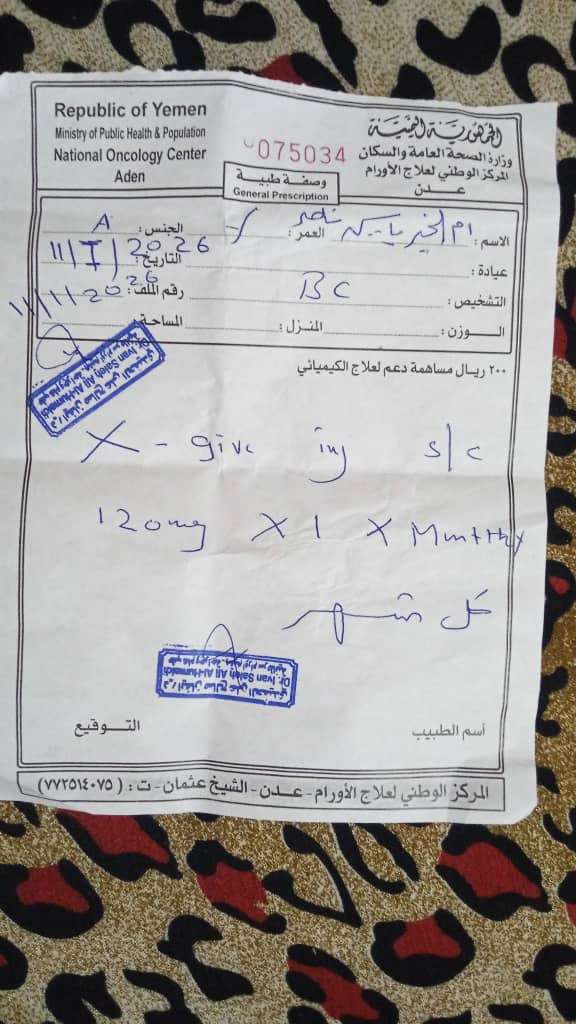 Republic of Yemen
Ministry of Public Health & Population
National Oncology Center
Aden
075034
وصفة طبية
General Prescription
الجمهورية اليمنية
وزارة الصحة العامة والسكان
المركز الوطني لعلاج الأورام
عدن
الاسم: ام الخير
العمر:
الجنس: A
عيادة:
التاريخ: 11/1/2026
التشخيص: BC
رقم الملف: 11/1/2026
الوزن:
المنزل:
المساحة:
٢٠٠ ريال مساهمة دعم لعلاج الكيميائي
X - give inj s/c
120mg X 1 X Monthly
كل شهر
Dr. Ivan Saleh Ali Al-Humaidi
Dr. Ivan Saleh Ali Al-Humaidi
أسم الطبيب
التوقيع
المركز الوطني لعلاج الأورام - عدن - الشيخ عثمان - ت: (٧٧٢٥١٤٠٧٥)